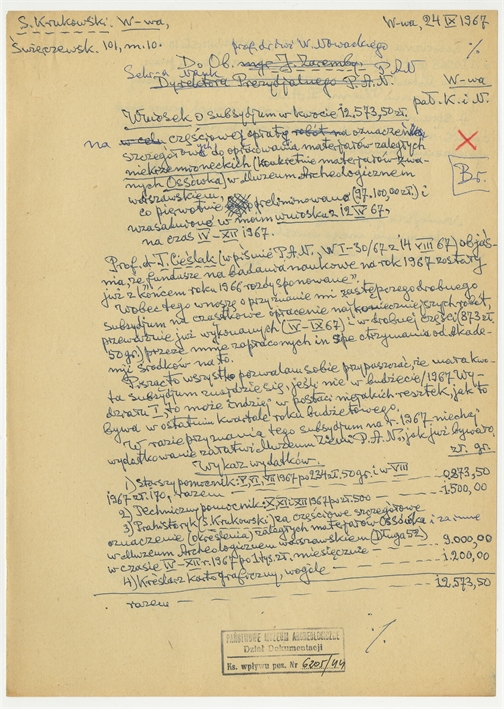 S. Krukowski. W-wa, W-wa, 24 IX 1967
Świerczewsk. 101, m. 10. prof. dr W. Nowackiego %
Do Ob. mgr J. Zaremby
Sekr-a Nauk. P.A.N W-wa
Dyrektora Prezydjalnego P.A.N. pał. K. i N.
Wniosek o subsydjum w kwocie 12.573,50 zł.
na w celu częściowej opłaty robót na oznaczenie
szczegółowe do opracowania materjałów zaległych
niekrzemioneckich (konkretnie materjałów zwa-
nych Ossówka) w Muzeum Archeologicznem
warszawskiem, Br.
co pierwotnie preliminowano (97.100,00 zł.) i
uzasadniono w moim wniosku z 12 IV 67,
na czas IV–XII 1967.
Prof. dr T. Cieślak (w piśmie P.A.N. „W I-30/67 z 14 VIII 67) objaś-
mia, że „fundusze na badania naukowe na rok 1967 zostały
już z końcem roku 1966 rozdysponowane”.
Wobec tego wnoszę o przyznanie mi zastępczego drobnego
subsydjum na cząstkowe opłacenie najkonieczniejszych robót
przeważnie już wykonanych (IV–IX 67) i w drobnej części (873 zł
50 gr.) przeze mnie zapłaconych in spe otrzymania od Akade-
mji środków na to.
Pisząc to wszystko pozwalam sobie przypuszczać, że mała kwo-
ta subsydjum znajdzie się, jeśli nie w budżecie/1967 Wy-
działu I, to może indziej w postaci niejakich resztek, jak to
bywa w ostatnim kwartale roku budżetowego.
W razie przyznania tego subsydjum na r. 1967, niechaj
wydatkowanie załatwi Muzeum Ziemi P.A.N., jak już bywało.
Wykaz wydatków. zł. gr.
1) Starszy pomocnik: V, VI, VII 1967 po 234 zł. 50 gr. i w VIII
1967 zł. 170, razem 0.873,50
2) Techniczny pomocnik: X, XI i XII 1967 po zł. 500 1.500,00
3) Prahistoryk (S. Krukowski) za częściowe szczegółowe
oznaczenie (określenia) zaległych materjałów Ossówka i za inne
w Muzeum Archeologicznem warszawskiem (Długa 52)
w czasie IV–XII r. 1967 po 1 tys. zł. miesięcznie 9.000,00
4) Kreślarz kartograficzny, wogóle 1.200,00
razem 12.573,50
%
PAŃSTWOWE MUZEUM ARCHEOLOGICZNE
Dział Dokumentacji
Ks. wpływu poz. Nr 6205/44